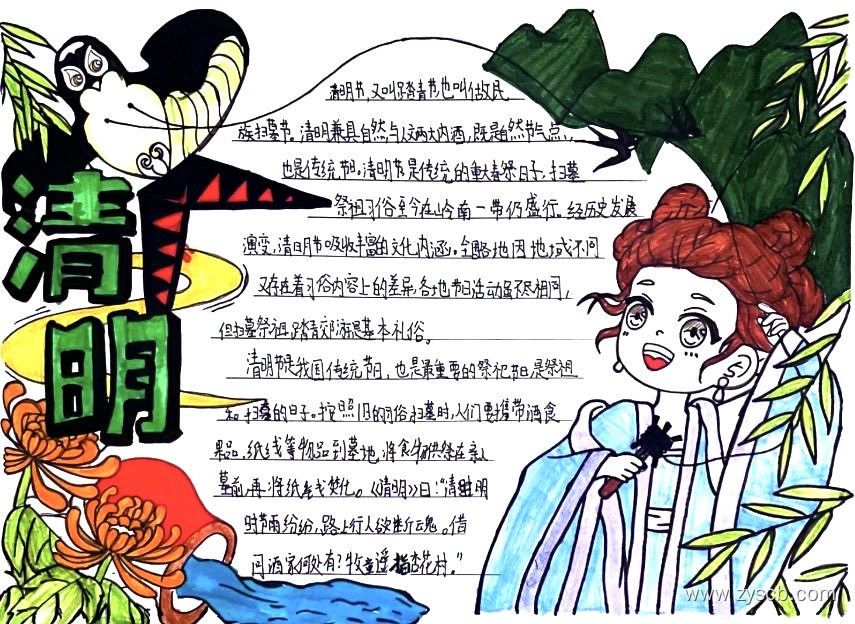 清明
清明节,又叫踏青节也叫做民
族扫墓节。清明兼具自然与人文两大内涵,既是自然节气点,
也是传统节日。清明节是传统的重大春祭日子,扫墓
祭祖习俗至今在岭南一带仍盛行。经历史发展
演变,清明节吸收丰富的文化内涵。全略地因地域不同
又存在着习俗内容上的差异,各地节日活动虽不尽相同,
但扫墓祭祖、踏青郊游是基本礼俗。
清明节是我国传统节日,也是最重要的祭祀节日是祭祖
和扫墓的日子。按照旧的习俗扫墓时,人们要携带酒食
果品、纸钱等物品到墓地,将食物供祭在亲人
墓前,再将纸钱焚化。《清明》曰:“清明
时节雨纷纷,路上行人欲断魂。借
问酒家何处有?牧童遥指杏花村。”
www.zyscb.com